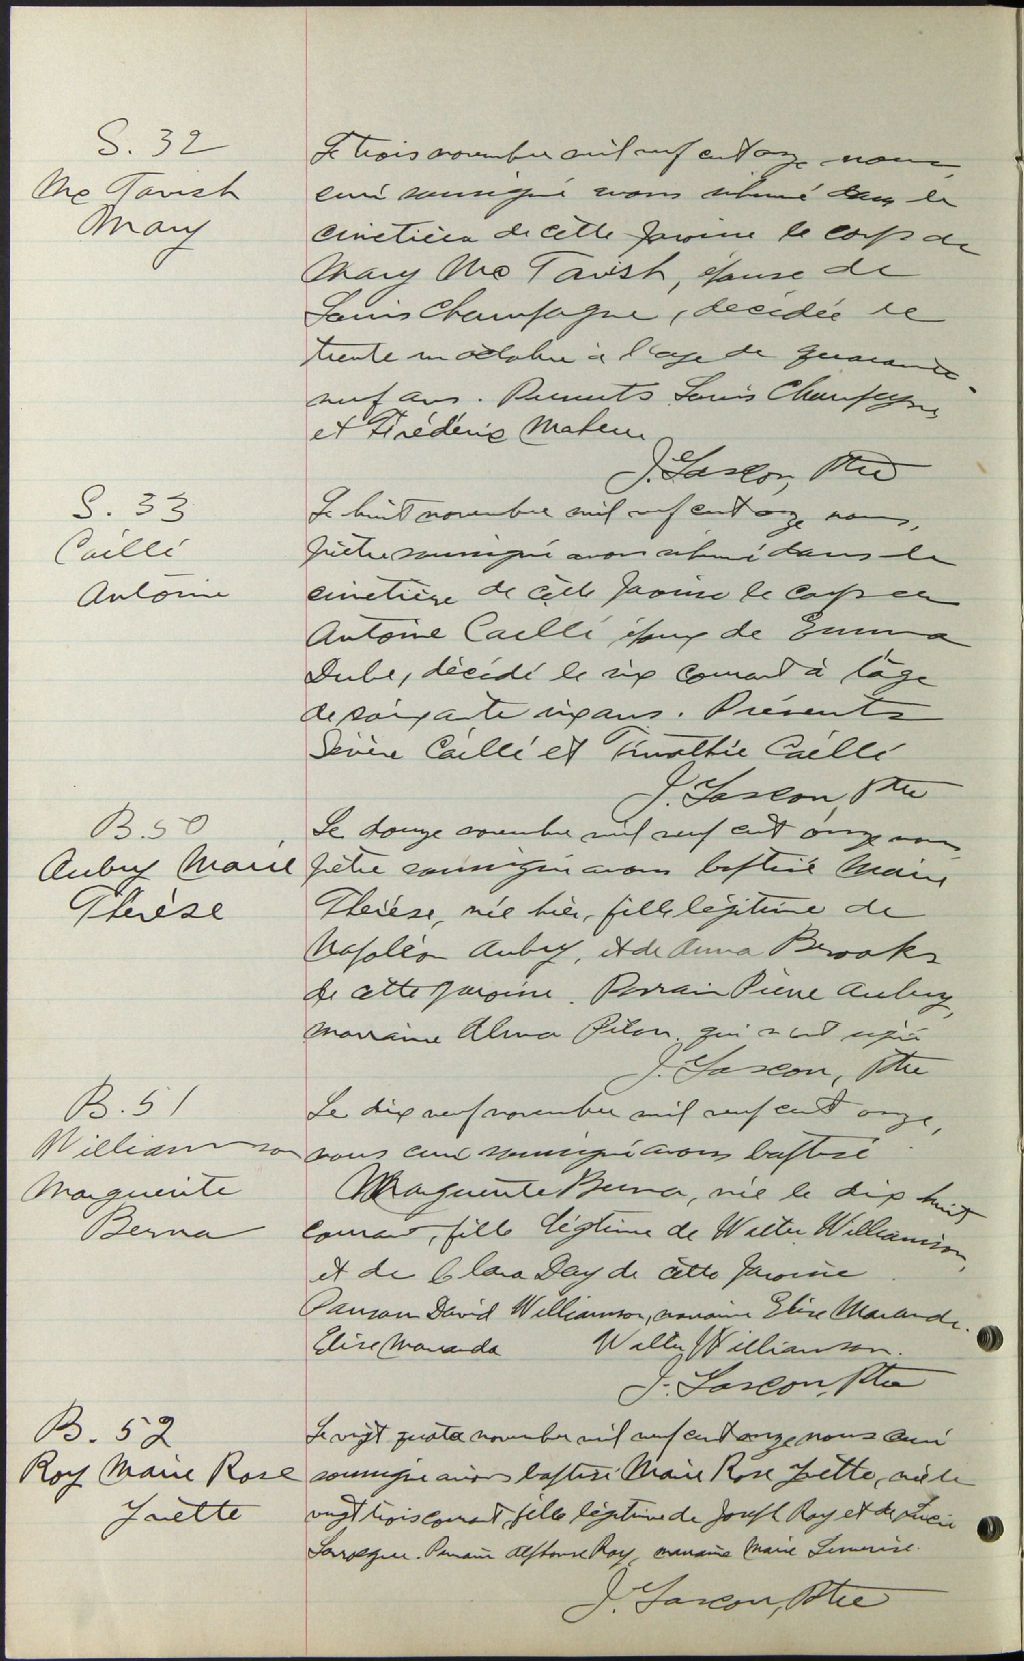 S. 32
Mc Tavish
Mary
Le trois novembre mil neuf cent onze nous
curé soussigné avons inhumé dans le
cimetière de cette paroisse le corps de
Mary Mc Tavish, épouse de
Louis Champagne, décédée le
trente un octobre à l'age de quarante
neuf ans. Présents Louis Champagne
et Frédéric
J. Gascon, Ptre
S. 33
Caillé
Antoine
Le huit novembre mil neuf cent onze nous,
prêtre soussigné avons inhumé dans le
cimetière de cette paroisse le corps de
Antoine Caillé époux de Emma
Dube, décédé le six courant à l'âge
de soixante six ans. Présents
Sévère Caillé et Timothée Caillé
J. Gascon, Ptre
B. 50
Aubry Marie
Thérèse
Le douze novembre mil neuf cent onze nous
prêtre soussigné avons baptisé Marie
Thérèse, née hier, fille légitime de
Napoléon Aubry, et de Anna Brooks
de cette paroisse. Parrain Pierre Aubry,
marraine Alma Pilon, qui n'ont signé
J. Gascon, Ptre
B. 51
Williamson
Marguerite
Berna
Le dix neuf novembre mil neuf cent onze,
nous curé soussigné avons baptisé
Marguerite Berna, née le dix huit
courant, fille légitime de Walter Williamson,
et de Clara Day de cette paroisse
Parrain David Williamson, marraine Elise Maranda.
Elise Maranda Walter Williamson.
J. Gascon, Ptre
B. 52
Roy Marie Rose
Yvette
Le vingt quatre novembre mil neuf cent onze nous curé
soussigné avons baptisé Marie Rose Yvette, née le
vingt trois courant, fille légitime de Joseph Roy et de
Larocque. Parrain Alphonse Roy, marraine Marie
J. Gascon, Ptre